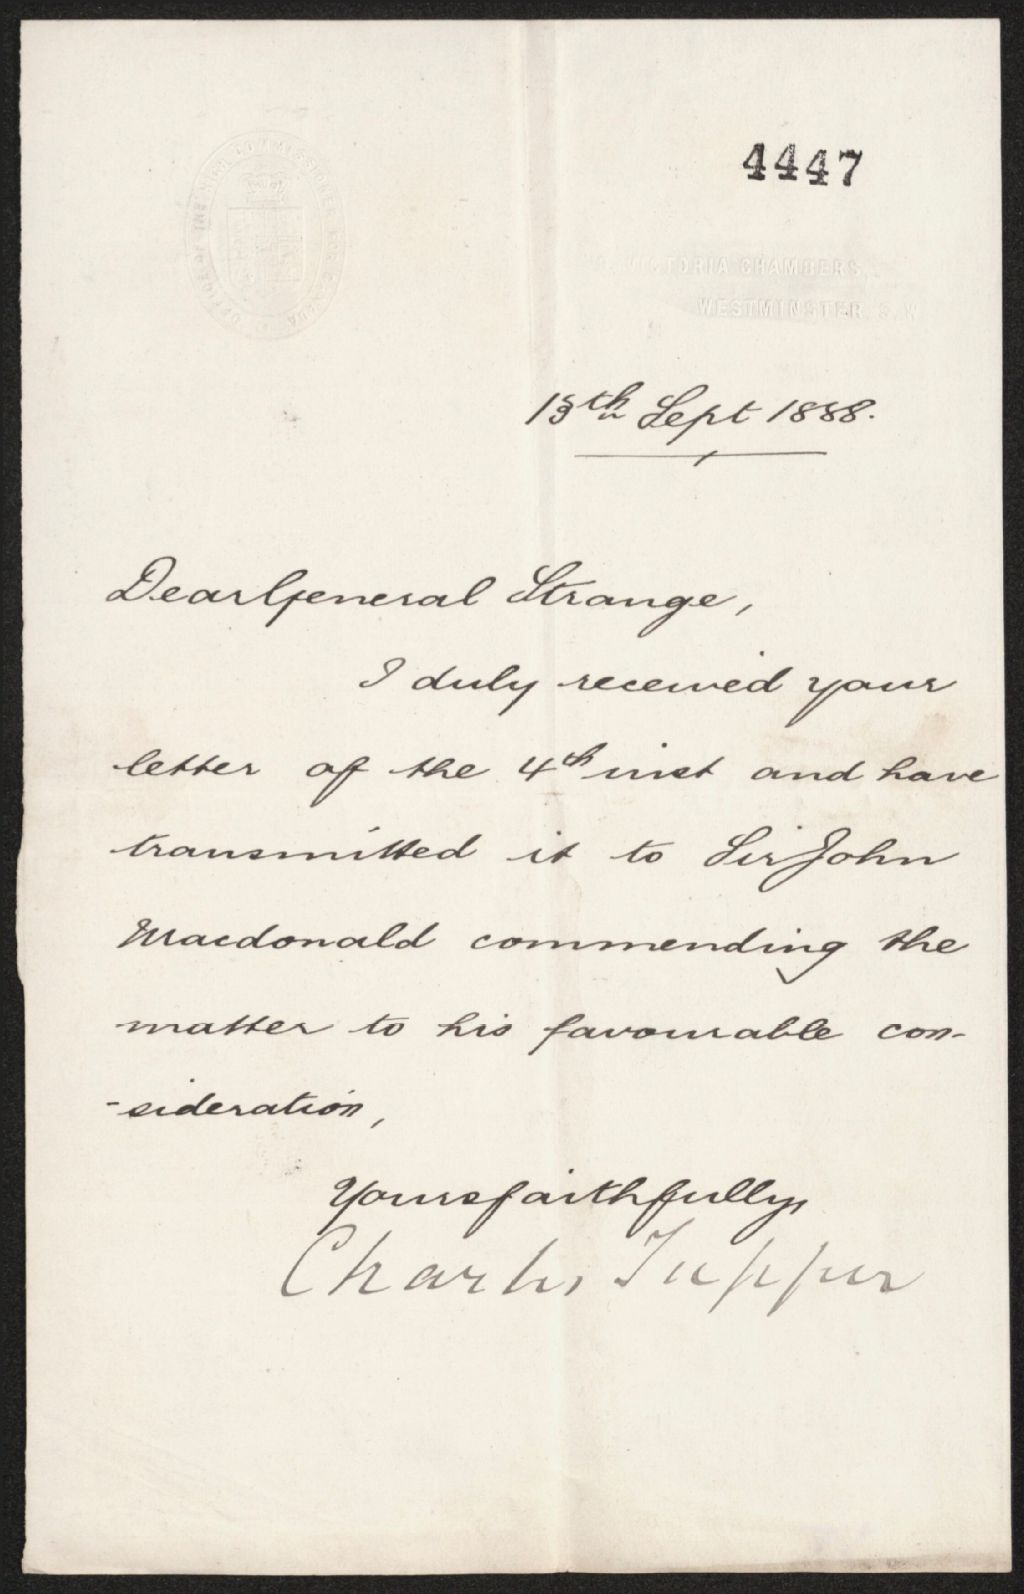 OFFICE OF THE HIGH COMMISSIONER FOR CANADA
4447
VICTORIA CHAMBERS,
WESTMINSTER. S.W
13th Sept 1888.
Dear General Strange,
I duly received your
letter of the 4th inst and have
transmitted it to Sir John
Macdonald commending the
matter to his favourable con-
-sideration,
Yours faithfully,
Charles Tupper